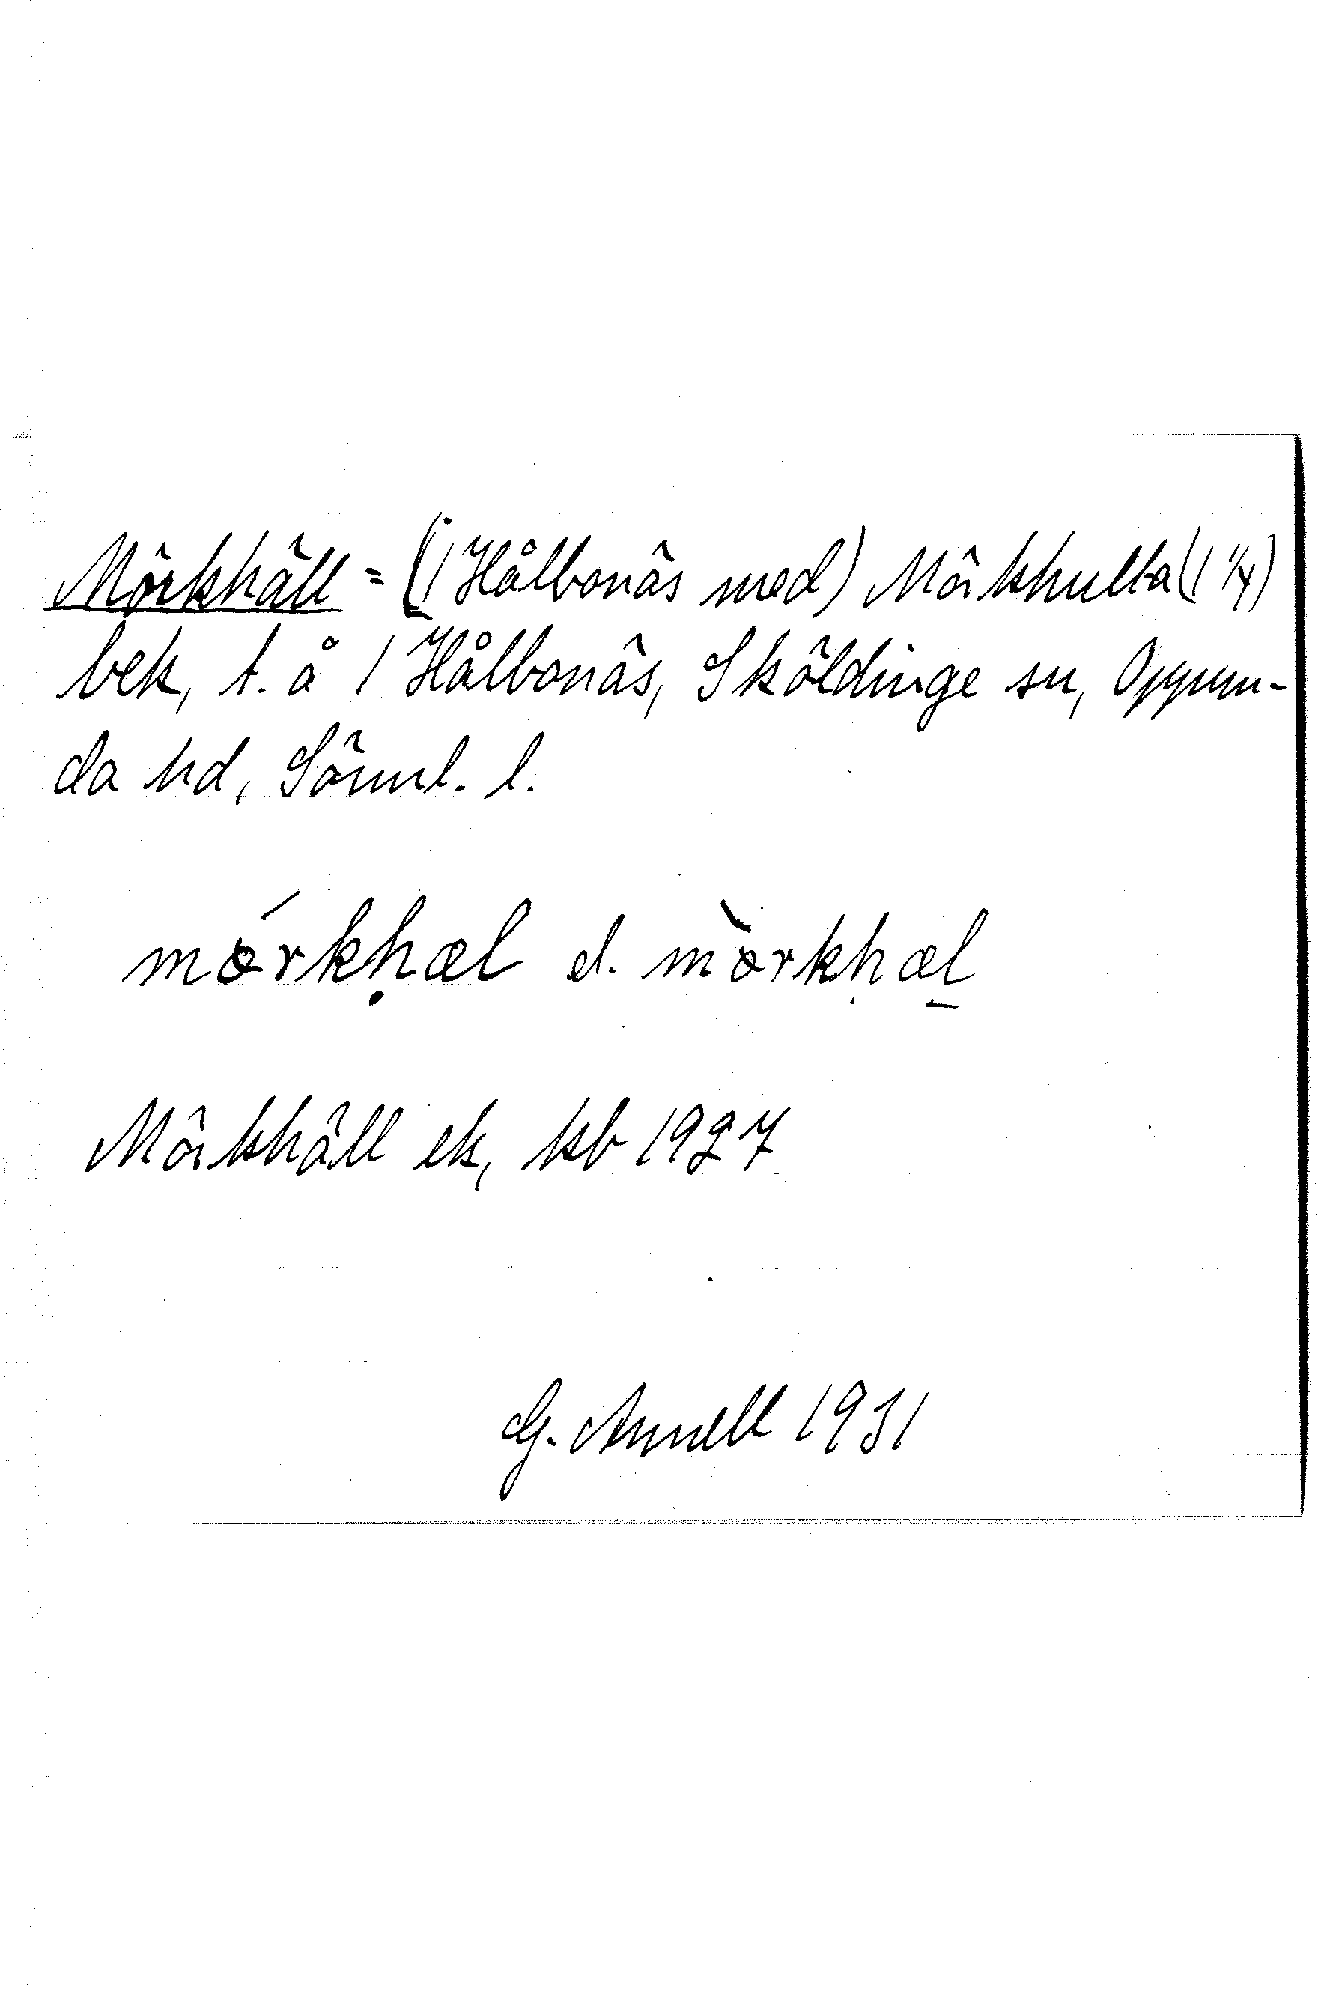 Mörkhäll = (1 Hålbonäs med) Mörkhulta (1 1/4)
bek, t. å 1 Hålbonäs, Sköldinge sn, Oppun-
da hd, Sörml. l.
mǿrkḥæl el. mœ̀rkḥæl̠
Mörkhäll ek, kb 1927
G. Annell 1931